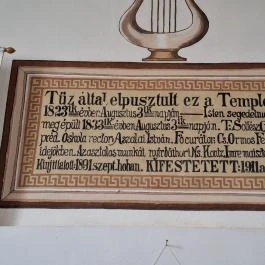 Tűz által elpusztult ez a Templo
1823ik évben Augusztus 3ik napján Isten segedelmé
megépült 1833ik évben Augusztus 3ik napján. T. Szőlősi
préd. Oskola rector Aszalai István. Fő curátor Cs. Ormos Fe
idejökben. Az asztalos munkát Imre
Kiujíttatott 1891 szept. hóban. KIFESTETETT: 1911 a